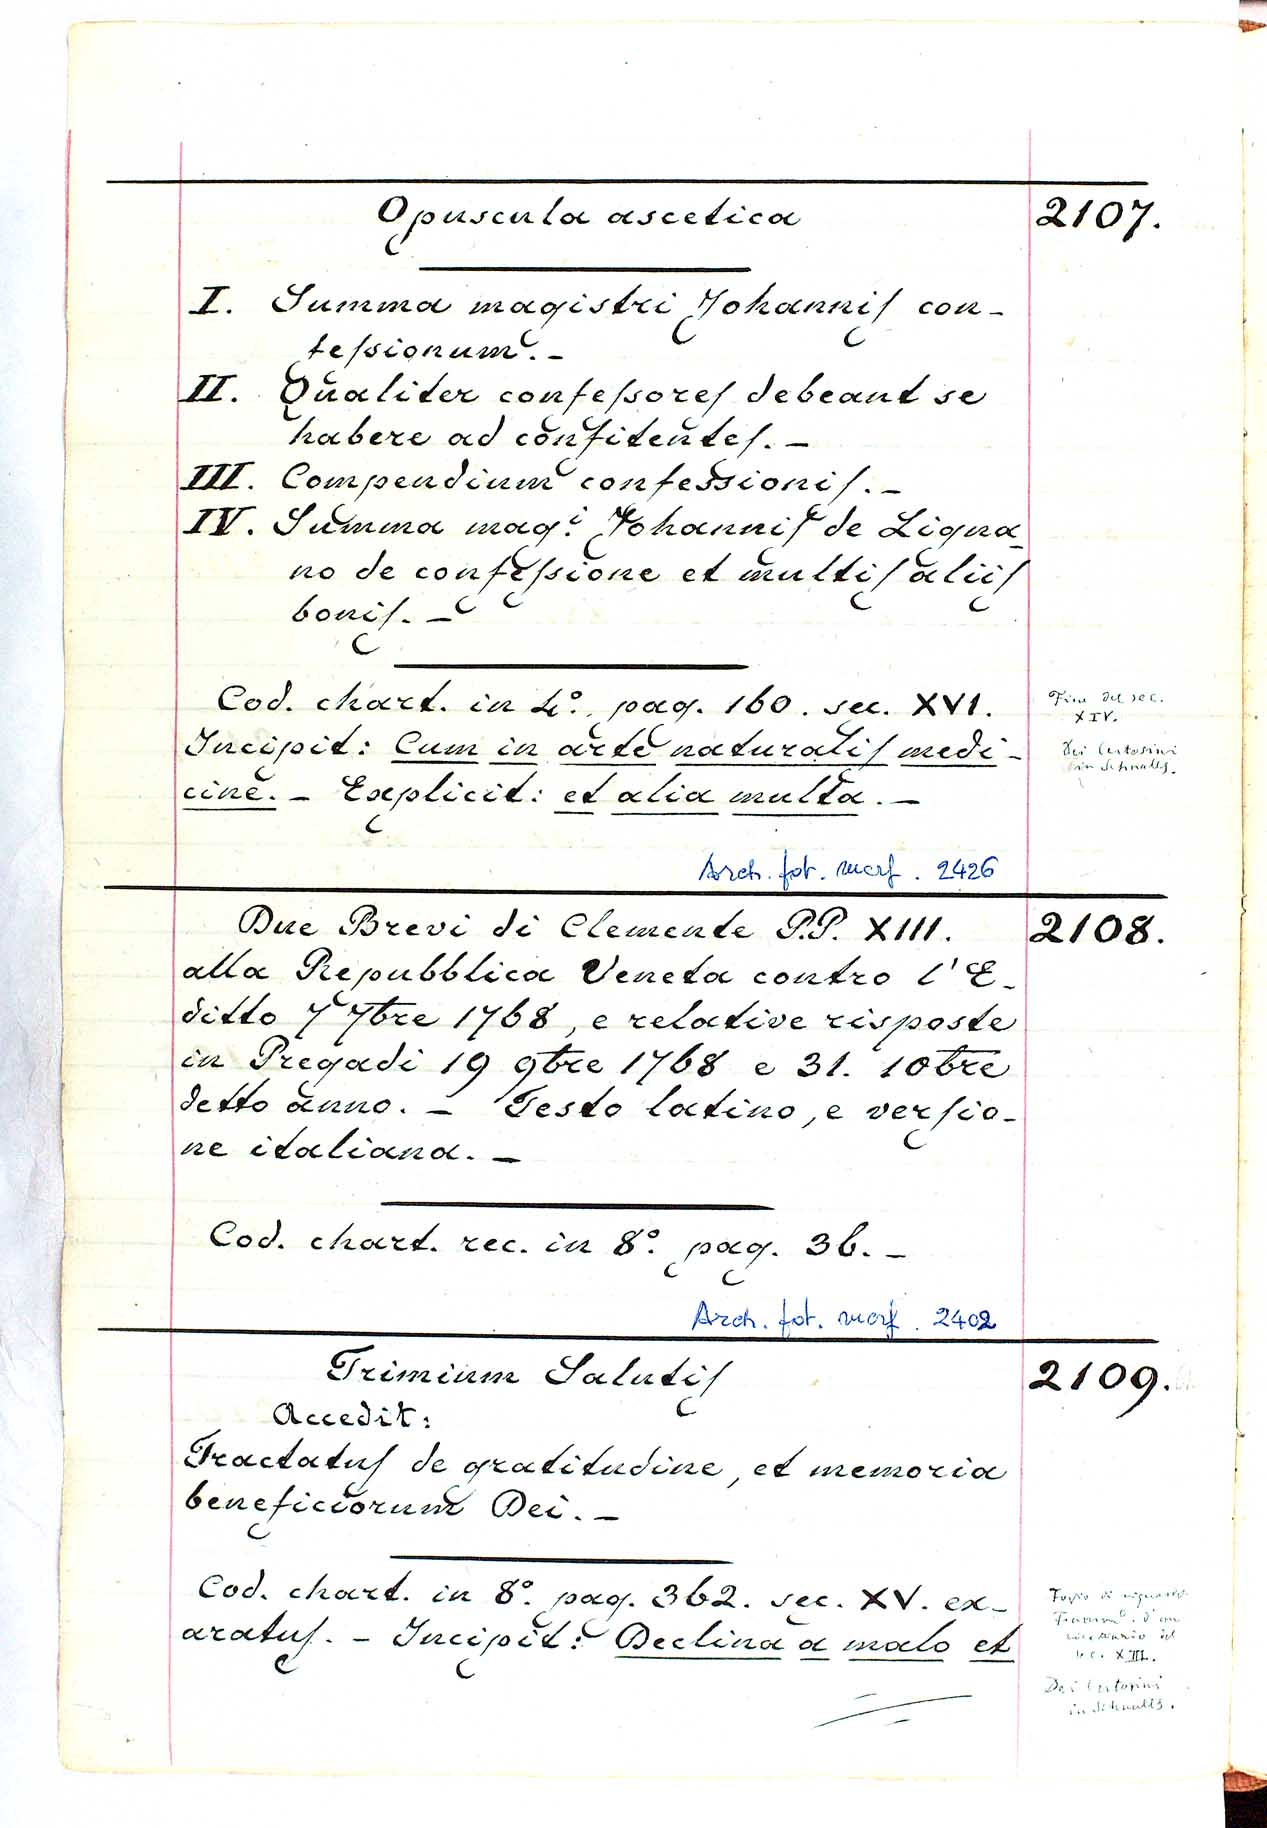 Opuscula ascetica
2107.
I. Summa magistri Johannis con-
fessionum. -
II. Qualiter confessores debeant se
habere ad confitentes. -
III. Compendium confessionis. -
IV. Summa mag.i Johannis de Ligna-
no de confessione et multis aliis
bonis. -
Cod. chart. in 4.° pag. 160. sec. XVI.
Incipit: Cum in arte naturalis medi-
cine. - Explicit: et alia multa. -
Fine del sec.
XIV.
Dei Certosini
in Schnalls.
Arch. fot. morf. 2426
Due Brevi di Clemente P.P. XIII.
2108.
alla Repubblica Veneta contro l'E-
ditto 7 7bre 1768, e relative risposte
in Pregadi 19 9bre 1768 e 31. 10bre
detto anno. - Testo latino, e versio-
ne italiana. -
Cod. chart. rec. in 8.° pag. 36. -
Arch. fot. morf. 2402
Trimium Salutis
2109.
Accedit:
Tractatus de gratitudine, et memoria
beneficiorum Dei. -
Cod. chart. in 8.° pag. 362. sec. XV. ex-
aratus. - Incipit: Declina a malo et
Foglio di
Framm.° d'un
del
sec. XIII.
Dei Certosini
in Schnalls.